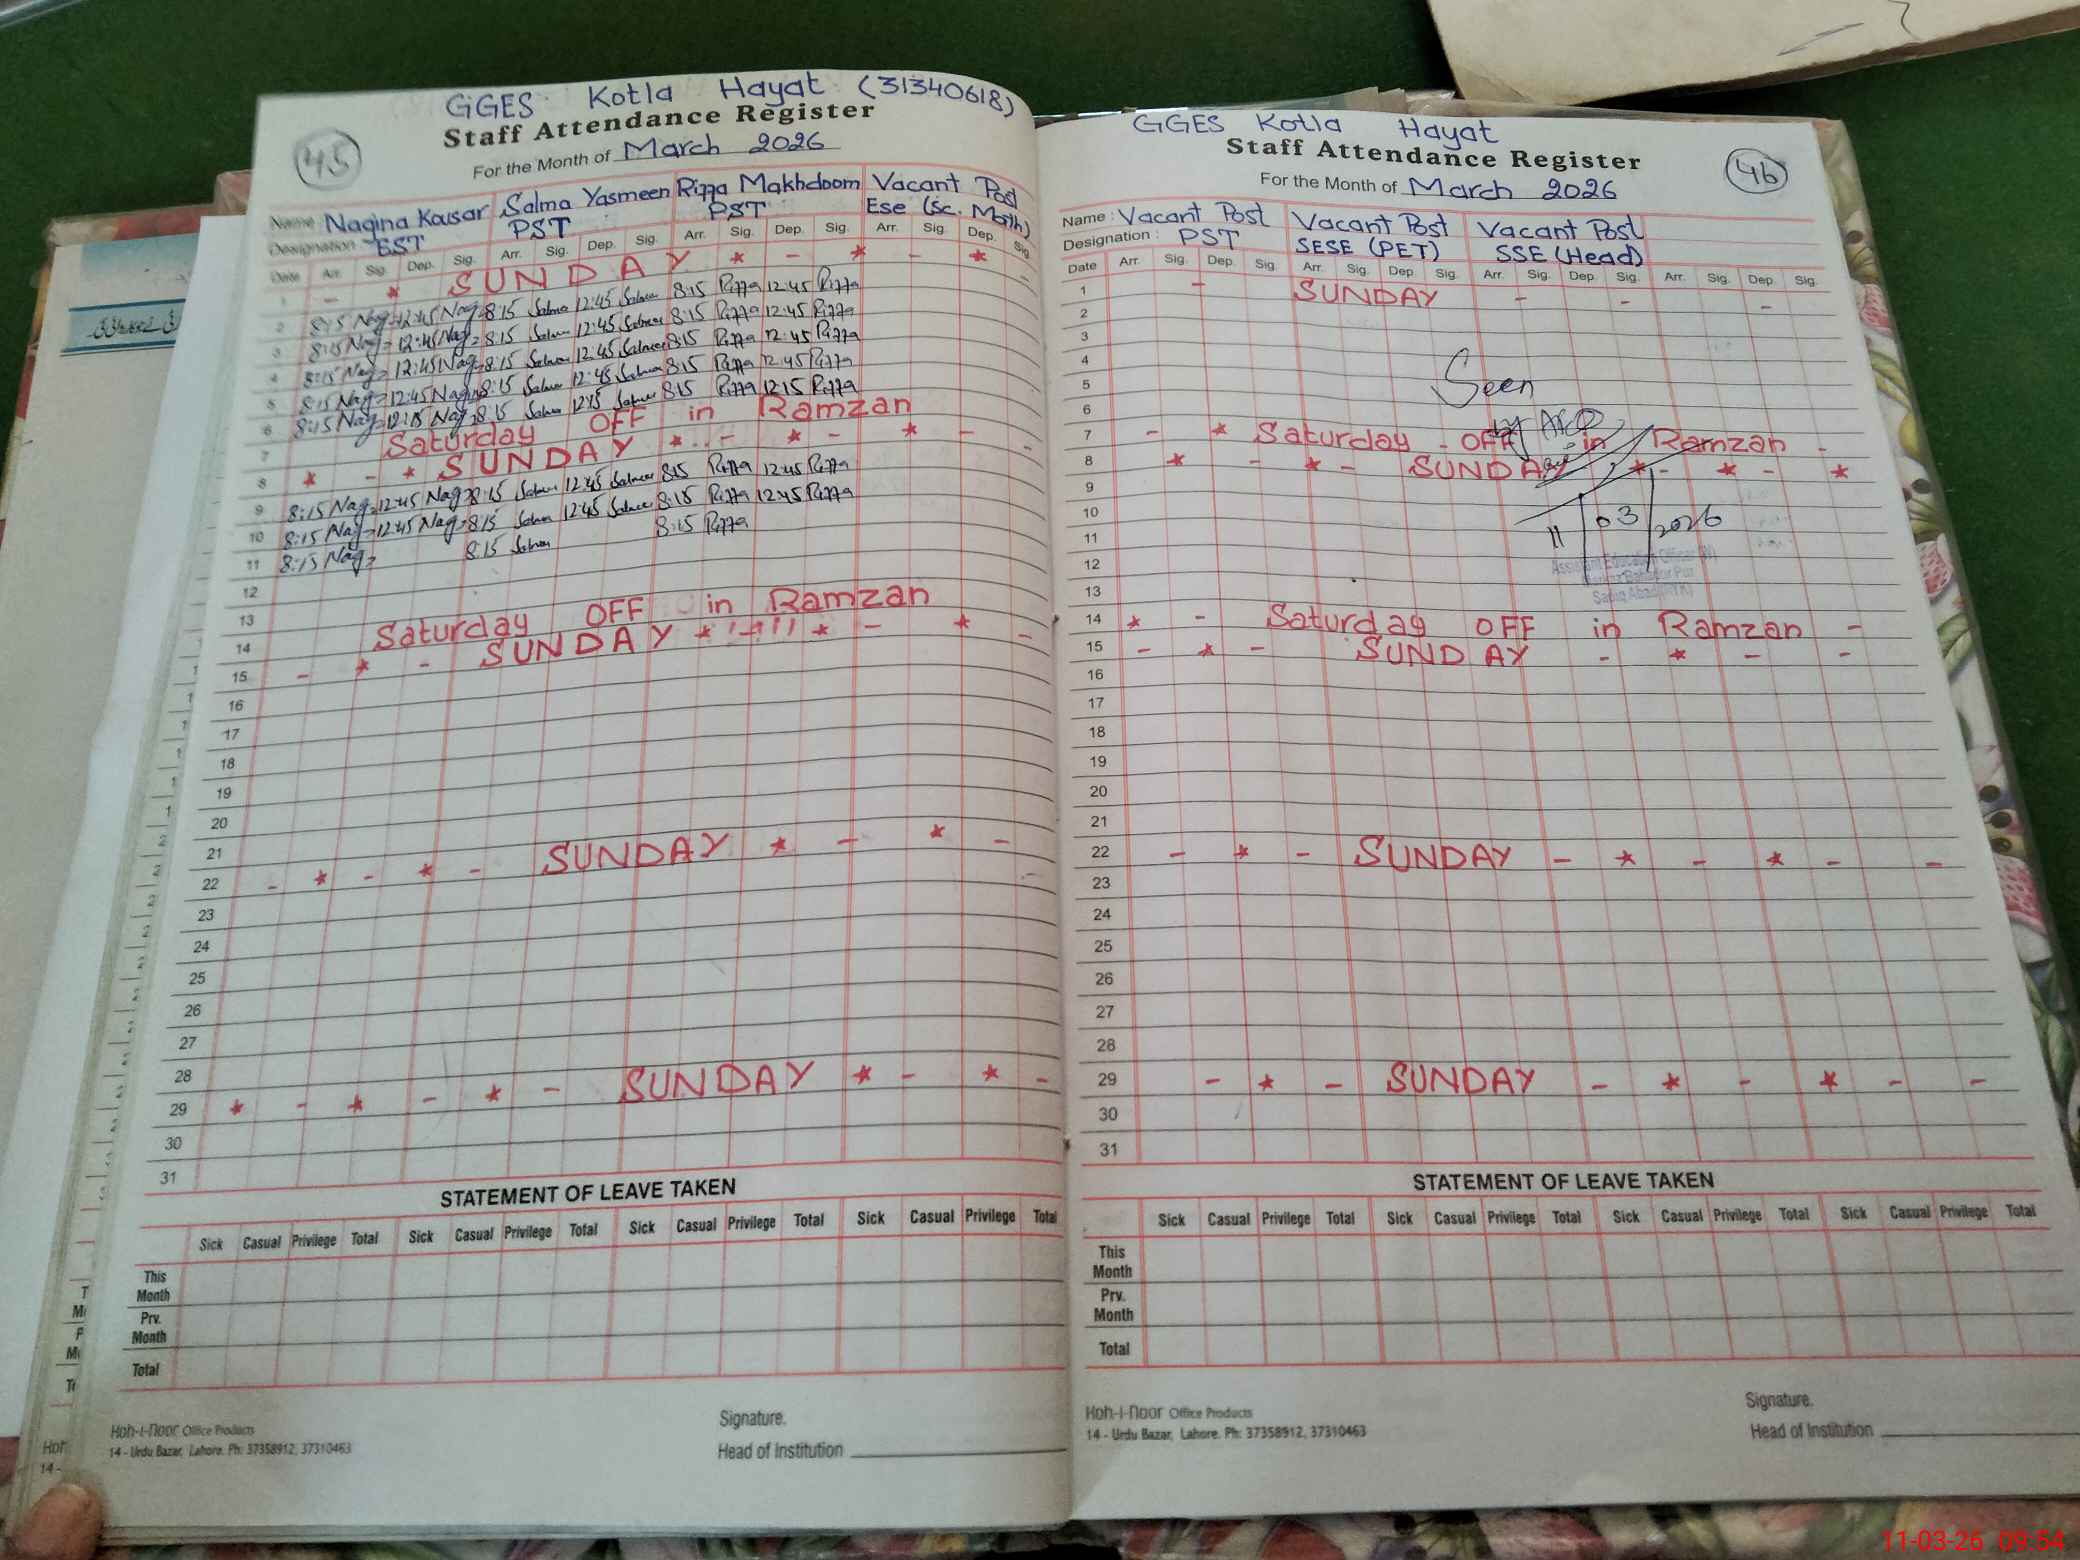 GGES Kotla Hayat (31340618)
Staff Attendance Register
45
For the Month of March 2026
Name: Nagina Kousar Salma Yasmeen Rizza Makhdoom Vacant Post
Designation: EST PST PST Ese (Sc. Math)
Date Arr. Sig. Dep. Sig. Arr. Sig. Dep. Sig. Arr. Sig. Dep. Sig. Arr. Sig. Dep. Sig.
1 - * SUNDAY * - * - * -
2 8:15 Nag 12:45 Nag 8:15 Salma 12:45 Salma 8:15 Rizza 12:45 Rizza
3 8:15 Nag 12:45 Nag 8:15 Salma 12:45 Salma 8:15 Rizza 12:45 Rizza
4 8:15 Nag 12:45 Nag 8:15 Salma 12:45 Salma 8:15 Rizza 12:45 Rizza
5 8:15 Nag 12:45 Nag 8:15 Salma 12:45 Salma 8:15 Rizza 12:45 Rizza
6 8:15 Nag 12:15 Nag 8:15 Salma 12:15 Salma 8:15 Rizza 12:15 Rizza
7 Saturday OFF in Ramzan
8 * - * SUNDAY * - * - * -
9 8:15 Nag 12:45 Nag 8:15 Salma 12:45 Salma 8:15 Rizza 12:45 Rizza
10 8:15 Nag 12:45 Nag 8:15 Salma 12:45 Salma 8:15 Rizza 12:45 Rizza
11 8:15 Nag 8:15 Salma 8:15 Rizza
12
13
14 Saturday OFF in Ramzan
15 - * - SUNDAY * * - * -
16
17
18
19
20
21
22 - * - * - SUNDAY * - * -
23
24
25
26
27
28
29 * - * - * - SUNDAY * - * -
30
31
STATEMENT OF LEAVE TAKEN
Sick Casual Privilege Total Sick Casual Privilege Total Sick Casual Privilege Total Sick Casual Privilege Total
This Month
Prv. Month
Total
Signature.
Head of Institution
Koh-I-Noor Office Products
14 - Urdu Bazar, Lahore. Ph: 37358912, 37310463
GGES Kotla Hayat
Staff Attendance Register
46
For the Month of March 2026
Name: Vacant Post Vacant Post Vacant Post
Designation: PST SESE (PET) SSE (Head)
Date Arr. Sig. Dep. Sig. Arr. Sig. Dep. Sig. Arr. Sig. Dep. Sig. Arr. Sig. Dep. Sig.
1 - SUNDAY - - -
2
3
4
Seen
5
6
7 - * Saturday - OFF in Ramzan -
8 * - * - SUNDAY * - * - *
9
10
11 03 2026
11
12
Assistant Education Officer (W)
13
14 * - Saturday OFF in Ramzan -
15 - * - SUNDAY - * - -
16
17
18
19
20
21
22 - * - SUNDAY - * - * - -
23
24
25
26
27
28
29 - * - SUNDAY - * - * - -
30
31
STATEMENT OF LEAVE TAKEN
Sick Casual Privilege Total Sick Casual Privilege Total Sick Casual Privilege Total Sick Casual Privilege Total
This Month
Prv. Month
Total
Signature.
Head of Institution
Koh-I-Noor Office Products
14 - Urdu Bazar, Lahore. Ph: 37358912, 37310463
11-03-26 09:54